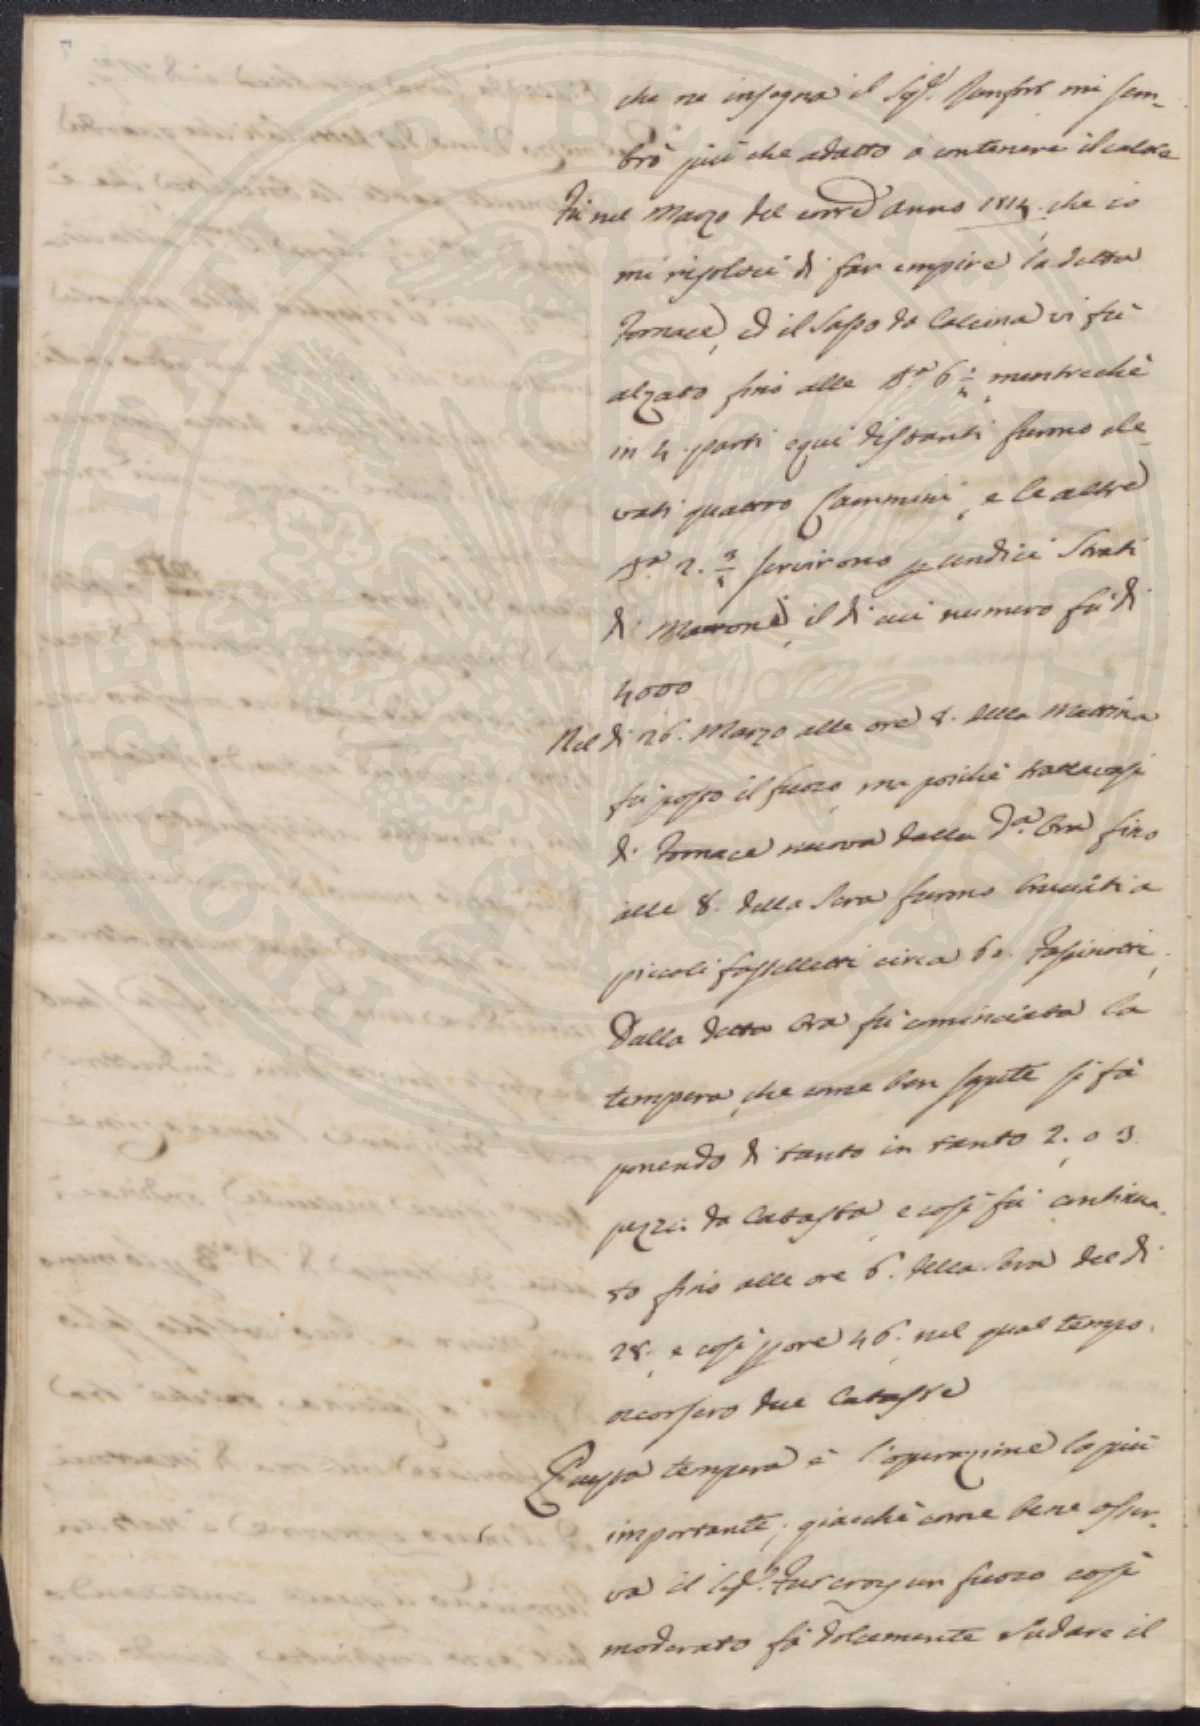 che ne insegna il Sig.r Rumford mi sem-
brò più che adatto a contenere il calore
Fù nel Marzo del corr.e Anno 1814. che io
mi risolvei di far empire la detta
Fornace, ed il Sasso da Calcina vi fù
alzato fino alle B.a 6 mentrechè
in 4 parti equi distanti furono ele-
vati quattro Cammini, e le altre
B.a 2. servirono p undici Strati
di Mattone, il di cui numero fù di
4000
Nel dì 26. Marzo alle ore 8. della Mattina
fù posto il fuoco, ma poichè trattavasi
di Fornace nuova dalla d.a Ora fino
alle 8. della Sera furono bruciati a
piccoli fastelletti circa 60. Fascinotti,
Dalla detta Ora fù cominciata la
tempera, che come ben sapete si fà
ponendo di tanto in tanto 2. o 3
pezzi da Catasta, e così fù continua-
to fino alle ore 6. della Sera del dì
28. e così p ore 46. nel qual tempo
occorsero due Cataste
Questa tempera è l'operazione la più
importante, giacchè come bene osser-
va il Sig.r Fourcroy un fuoco così
moderato fà dolcemente sudare il